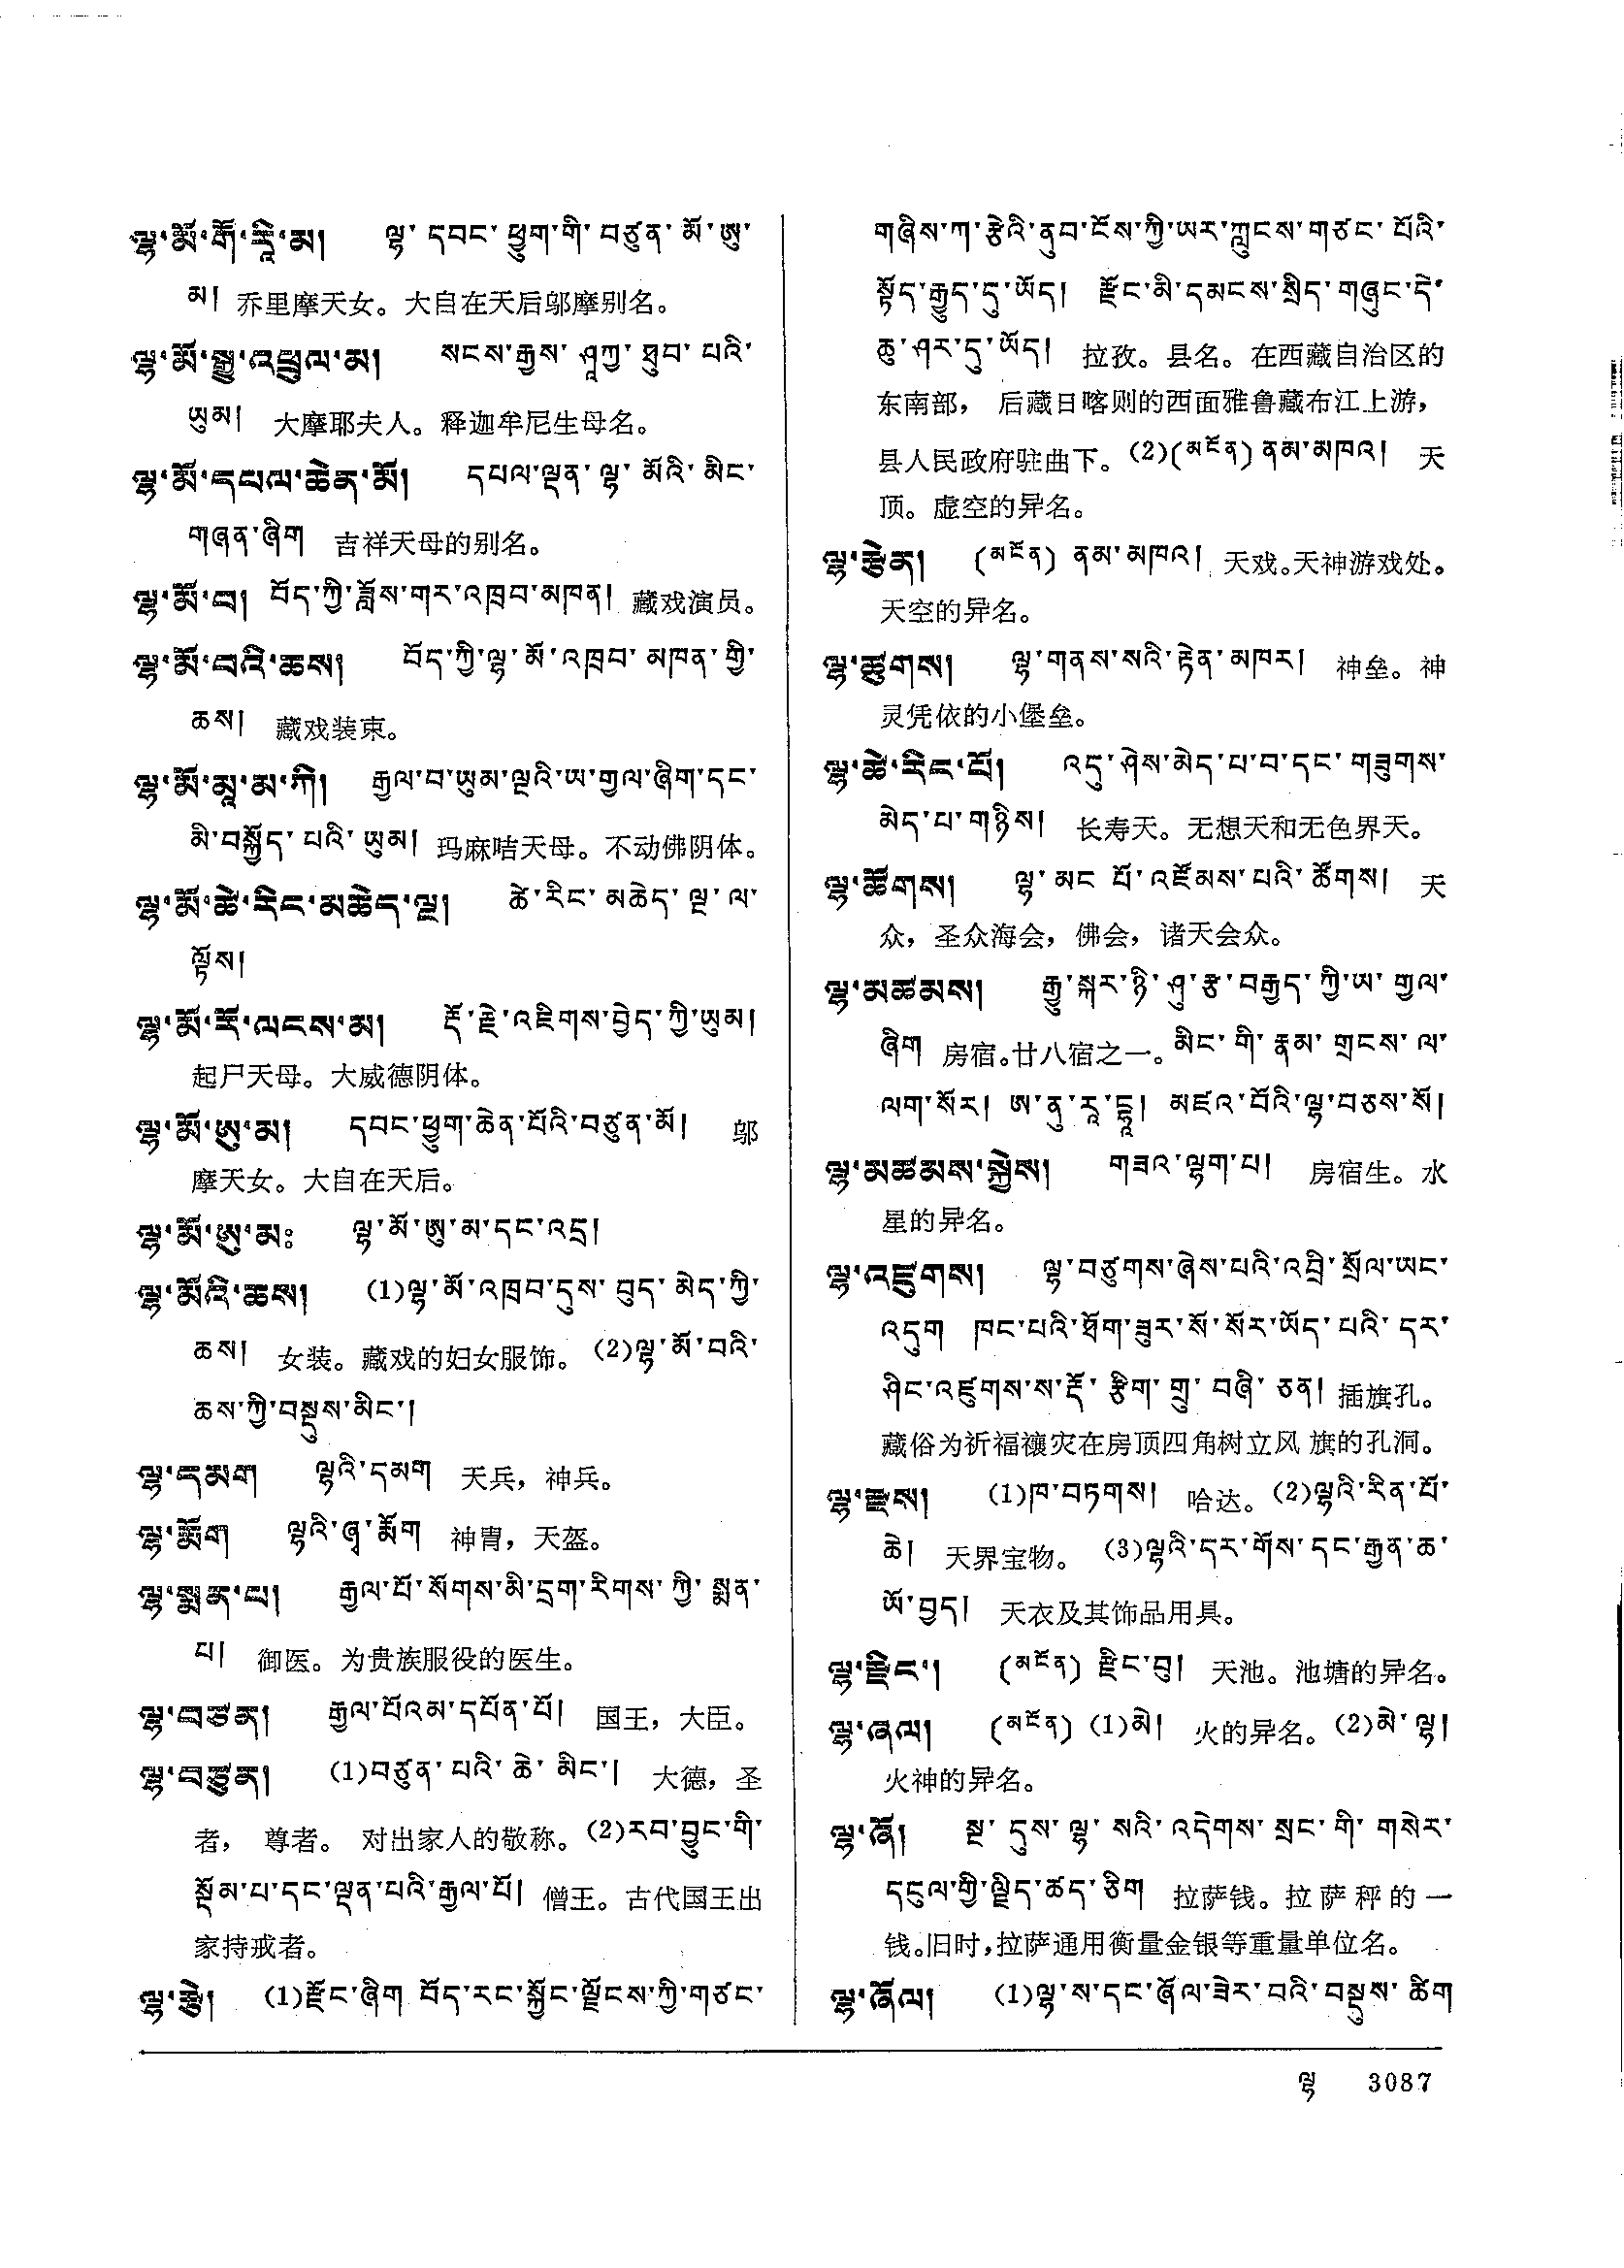 ལྷ་མོ་གོ་རཱི་མ། ལྷ་དབང་ཕྱུག་གི་བཙུན་མོ་ཨུ་
མ། 乔里摩天女。大自在天后邬摩别名。
ལྷ་མོ་སྒྱུ་འཕྲུལ་མ། སངས་རྒྱས་ཤཱཀྱ་ཐུབ་པའི་
ཡུམ། 大摩耶夫人。释迦牟尼生母名。
ལྷ་མོ་དཔལ་ཆེན་མོ། དཔལ་ལྡན་ལྷ་མོའི་མིང་
གཞན་ཞིག 吉祥天母的别名。
ལྷ་མོ་བ། བོད་ཀྱི་ཟློས་གར་འཁྲབ་མཁན། 藏戏演员。
ལྷ་མོ་བའི་ཆས། བོད་ཀྱི་ལྷ་མོ་འཁྲབ་མཁན་གྱི་
ཆས། 藏戏装束。
ལྷ་མོ་མཱ་མ་ཀི། རྒྱལ་བ་ཡུམ་ལྔའི་ཡ་གྱལ་ཞིག་དང་
མི་བསྐྱོད་པའི་ཡུམ། 玛麻咭天母。不动佛阴体。
ལྷ་མོ་ཚེ་རིང་མཆེད་ལྔ། ཚེ་རིང་མཆེད་ལྔ་ལ་
ལྟོས།
ལྷ་མོ་རོ་ལངས་མ། རྡོ་རྗེ་འཇིགས་བྱེད་ཀྱི་ཡུམ།
起尸天母。大威德阴体。
ལྷ་མོ་ཨུ་མ། དབང་ཕྱུག་ཆེན་པོའི་བཙུན་མོ། 邬
摩天女。大自在天后。
ལྷ་མོ་ཨུ་མ༔ ལྷ་མོ་ཨུ་མ་དང་འདྲ།
ལྷ་མོའི་ཆས། (1)ལྷ་མོ་འཁྲབ་དུས་བུད་མེད་ཀྱི་
ཆས། 女装。藏戏的妇女服饰。(2)ལྷ་མོ་བའི་
ཆས་ཀྱི་བསྡུས་མིང་།
ལྷ་དམག ལྷའི་དམག 天兵，神兵。
ལྷ་རྨོག ལྷའི་ཞྭ་རྨོག 神胄，天盔。
ལྷ་སྨན་པ། རྒྱལ་པོ་སོགས་མི་དྲག་རིགས་ཀྱི་སྨན་
པ། 御医。为贵族服役的医生。
ལྷ་བཙན། རྒྱལ་པོའམ་དཔོན་པོ། 国王，大臣。
ལྷ་བཙུན། (1)བཙུན་པའི་ཆེ་མིང་། 大德，圣
者， 尊者。 对出家人的敬称。(2)རབ་བྱུང་གི་
སྡོམ་པ་དང་ལྡན་པའི་རྒྱལ་པོ། 僧王。古代国王出
家持戒者。
ལྷ་རྩེ། (1)རྫོང་ཞིག བོད་རང་སྐྱོང་ལྗོངས་ཀྱི་གཙང་
གཞིས་ཀ་རྩེའི་ནུབ་ངོས་ཀྱི་ཡར་ཀླུངས་གཙང་པོའི་
སྟོད་རྒྱུད་དུ་ཡོད། རྫོང་མི་དམངས་སྲིད་གཞུང་དེ་
ཆུ་ཤར་དུ་ཡོད། 拉孜。县名。在西藏自治区的
东南部， 后藏日喀则的西面雅鲁藏布江上游，
县人民政府驻曲下。(2)(མངོན)ནམ་མཁའ། 天
顶。虚空的异名。
ལྷ་རྩེན། (མངོན) ནམ་མཁའ། 天戏。天神游戏处。
天空的异名。
ལྷ་ཚུགས། ལྷ་གནས་སའི་རྟེན་མཁར། 神垒。神
灵凭依的小堡垒。
ལྷ་ཚེ་རིང་པོ། འདུ་ཤེས་མེད་པ་བ་དང་གཟུགས་
མེད་པ་གཉིས། 长寿天。无想天和无色界天。
ལྷ་ཚོགས། ལྷ་མང་པོ་འཛོམས་པའི་ཚོགས། 天
众，圣众海会，佛会，诸天会众。
ལྷ་མཚམས། རྒྱུ་སྐར་ཉི་ཤུ་རྩ་བརྒྱད་ཀྱི་ཡ་གྱལ་
ཞིག 房宿。廿八宿之一。མིང་གི་རྣམ་གྲངས་ལ་
ལག་སོར། ཨ་ནུ་རཱ་དྷཱ། མཛའ་བོའི་ལྷ་བཅས་སོ།
ལྷ་མཚམས་སྐྱེས། གཟའ་ལྷག་པ། 房宿生。水
星的异名。
ལྷ་འཛུགས། ལྷ་བཙུགས་ཞེས་པའི་འབྲི་སྲོལ་ཡང་
འདུག ཁང་པའི་ཐོག་ཟུར་སོ་སོར་ཡོད་པའི་དར་
ཤིང་འཛུགས་ས་རྡོ་རྩིག་གྲུ་བཞི་ཅན། 插旗孔。
藏俗为祈福禳灾在房顶四角树立风旗的孔洞。
ལྷ་རྫས། (1)ཁ་བཏགས། 哈达。(2)ལྷའི་རིན་པོ་
ཆེ། 天界宝物。 (3)ལྷའི་དར་གོས་དང་རྒྱན་ཆ་
ཡོ་བྱད། 天衣及其饰品用具。
ལྷ་རྫིང་། (མངོན) རྫིང་བུ། 天池。池塘的异名。
ལྷ་ཞལ། (མངོན) (1)མེ། 火的异名。(2)མེ་ལྷ།
火神的异名。
ལྷ་ཞོ། སྔ་དུས་ལྷ་སའི་འདེགས་སྲང་གི་གསེར་
དངུལ་གྱི་ལྗིད་ཚད་ཅིག 拉萨钱。拉萨秤的一
钱。旧时，拉萨通用衡量金银等重量单位名。
ལྷ་ཞོལ། (1)ལྷ་ས་དང་ཞོལ་ཟེར་བའི་བསྡུས་ཚིག
ལྷ 3087